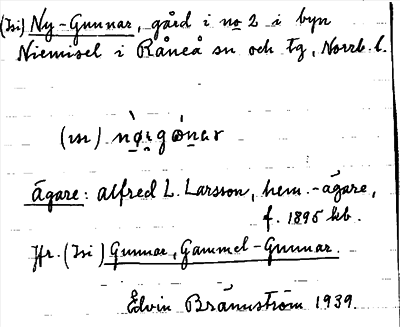 (Isi) Ny-Gunnar, gård i no 2 i byn
Niemisel i Råneå sn och tg, Norrb. l.
(ısı)
Ägare: Alfred L. Larsson, hem.-ägare,
f. 1895 hb.
Jfr. (Isi) Gunnar, Gammel-Gunnar.
Edvin Brännström 1939.